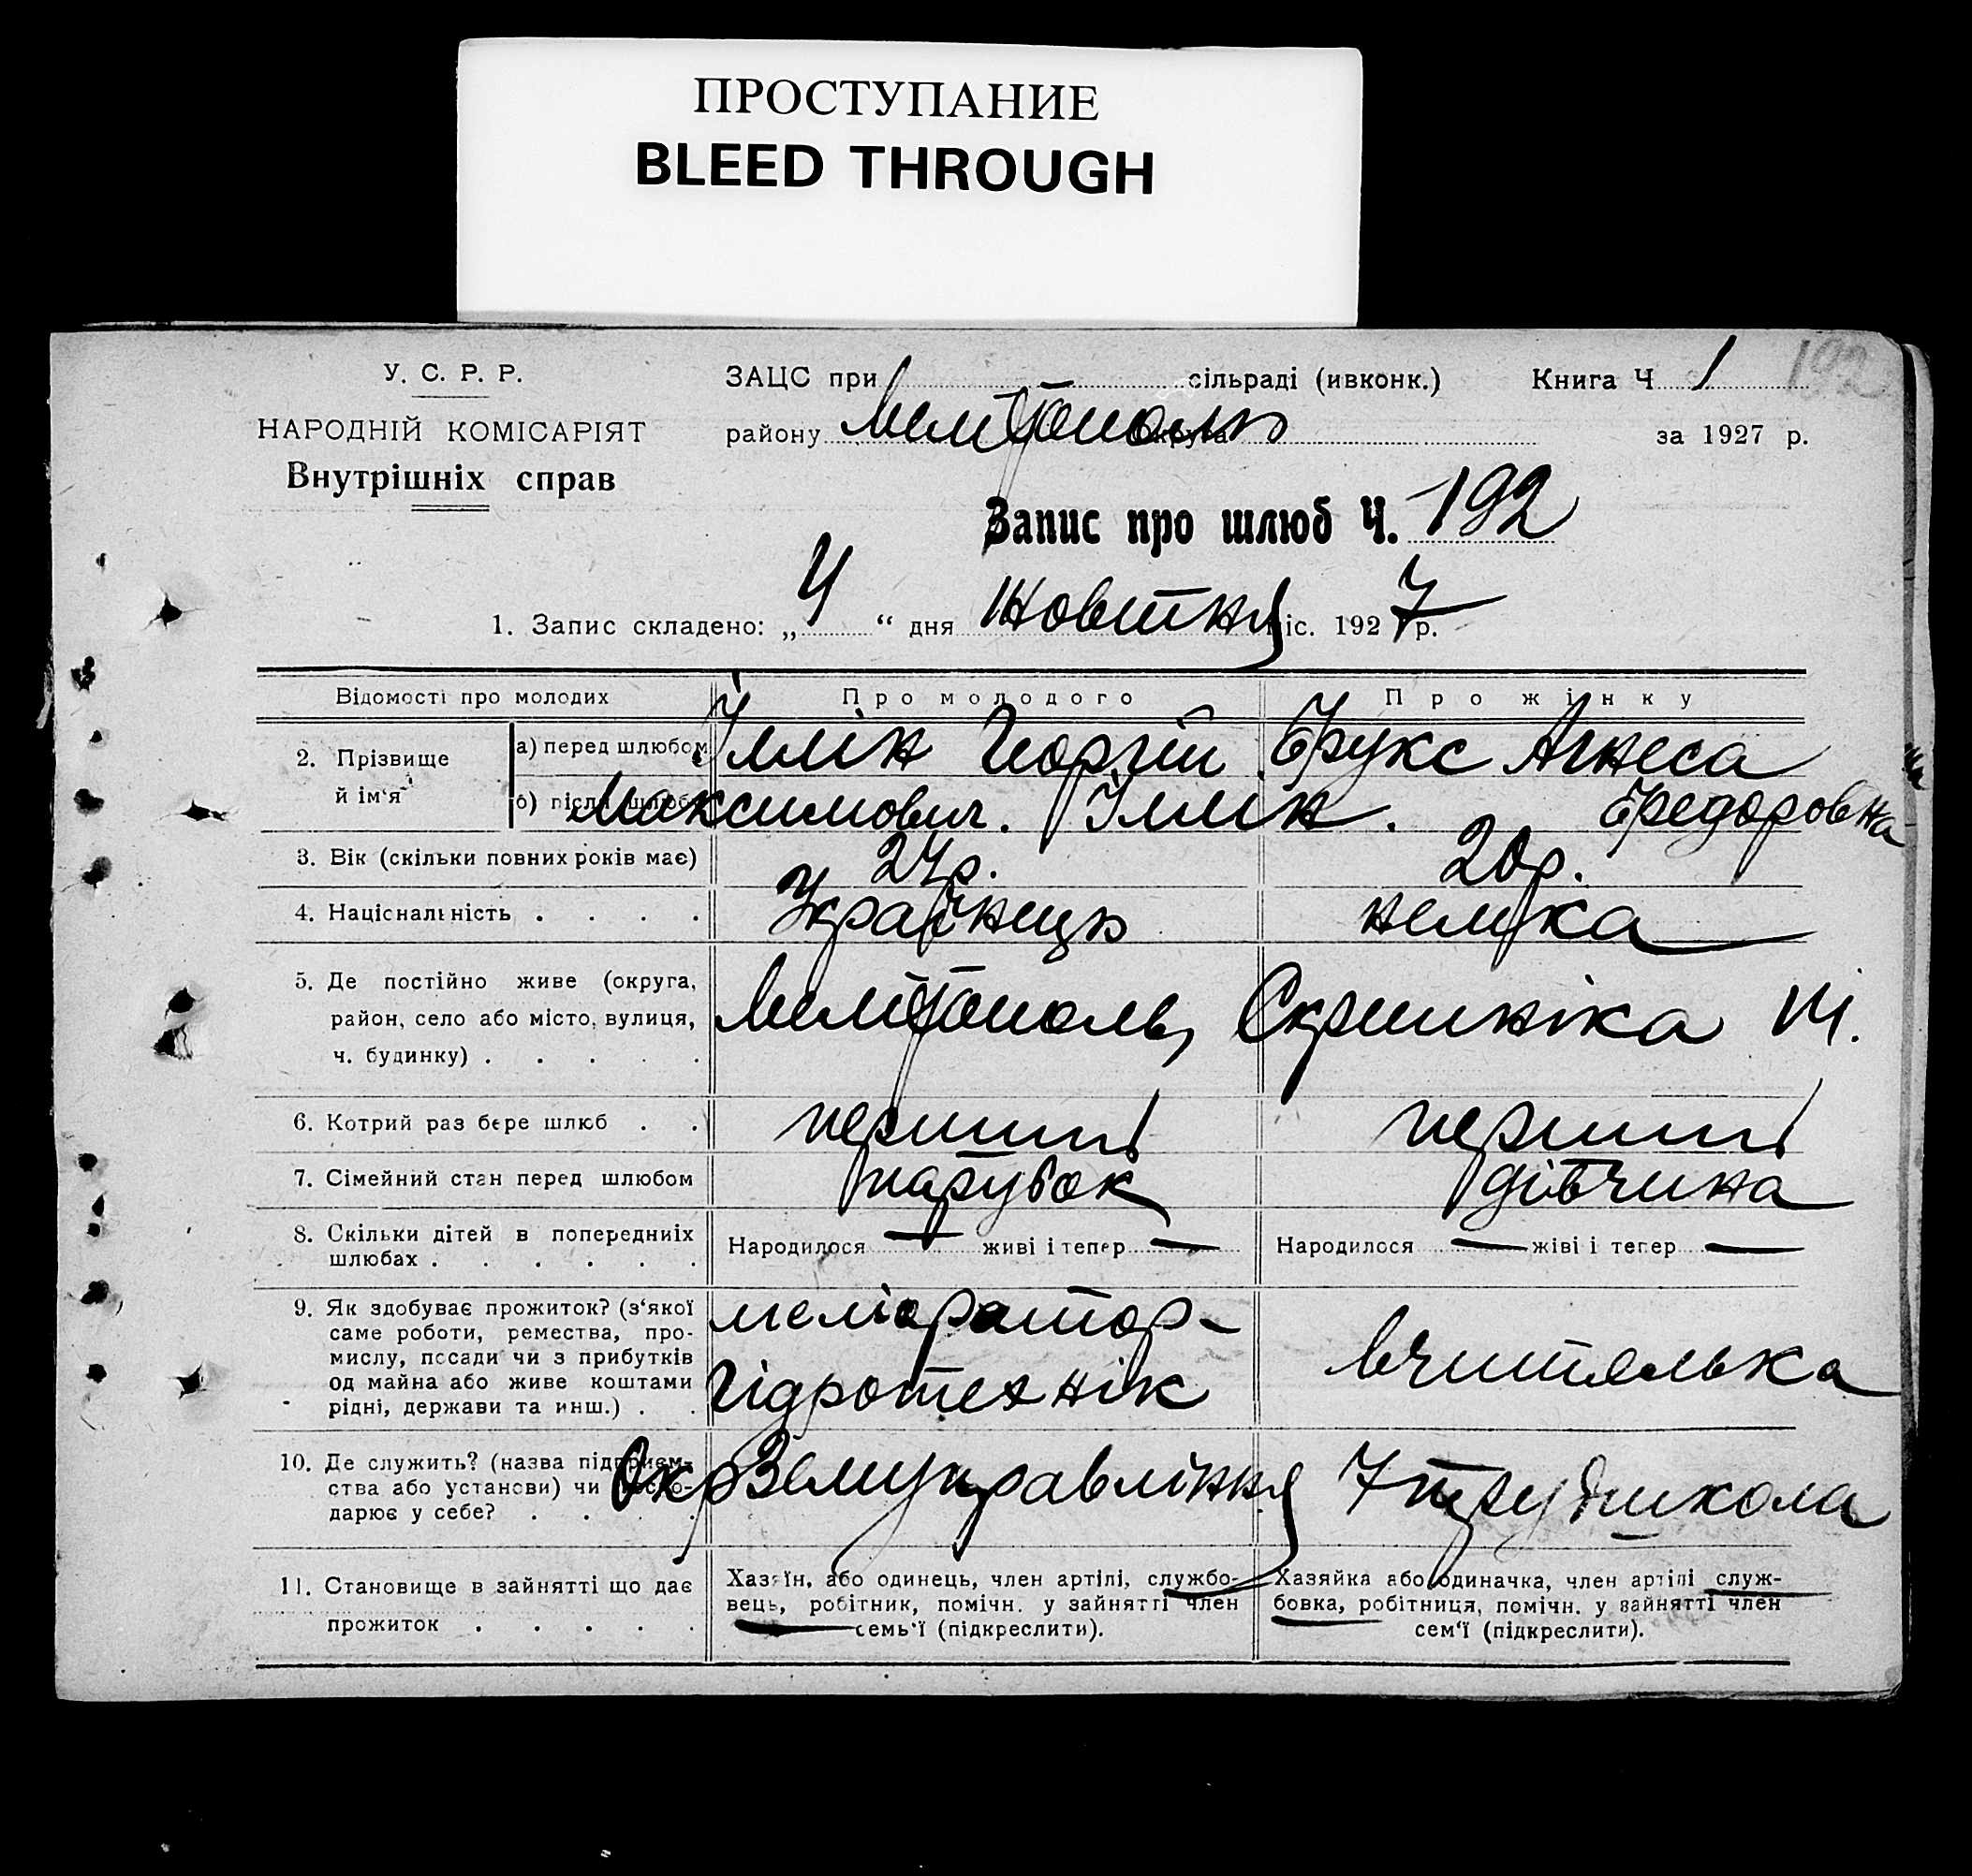 ПРОСТУПАНИЕ
BLEED THROUGH
У. С. Р. Р.
НАРОДНІЙ КОМІСАРІЯТ
Внутрішніх справ
ЗАЦС при сільраді (ивконк.) Книга Ч 1 192
району Мелітополь Округа за 1927 р.
Запис про шлюб Ч. 192
1. Запис складено: „ 4 “ дня Жовтня міс. 1927 р.
Відомості про молодих
Про молодого
Про жінку
2. Прізвище й ім‘я
а) перед шлюбом
б) після шлюбу
Іллін Георгій
Максимович. Іллін.
Фрукс Агнеса
Федоровна
3. Вік (скільки повних років має)
24р.
20р.
4. Національність
Українець
немка
5. Де постійно живе (округа,
район, село або місто, вулиця,
ч. будинку)
Мелітополь, Скрипніка
6. Котрий раз бере шлюб
перший
перший
7. Сімейний стан перед шлюбом
парубок
дівчина
8. Скільки дітей в попередниіх
шлюбах
Народилося — живі і тепер —
Народилося — жіві і тепер —
9. Як здобуває прожиток? (з‘якої
саме роботи, ремества, про-
мислу, посади чи з прибутків
од майна або живе коштами
рідні, держави та инш.)
меліоратор-
гідротехнік
вчителька
10. Де служить? (назва підприєм-
ства або установи) чи госпо-
дарює у себе?
ОкрЗемуправління
7 трудшкола
11. Становище в зайнятті що дає
прожиток
Хазяїн, або одинець, член артілі, службо-
вець, робітник, помічн. у зайнятті член
семь‘ї (підкреслити).
Хазяйка або одиначка, член артілі служ-
бовка, робітниця, помічн. у зайнятті член
сем‘ї (підкреслити).